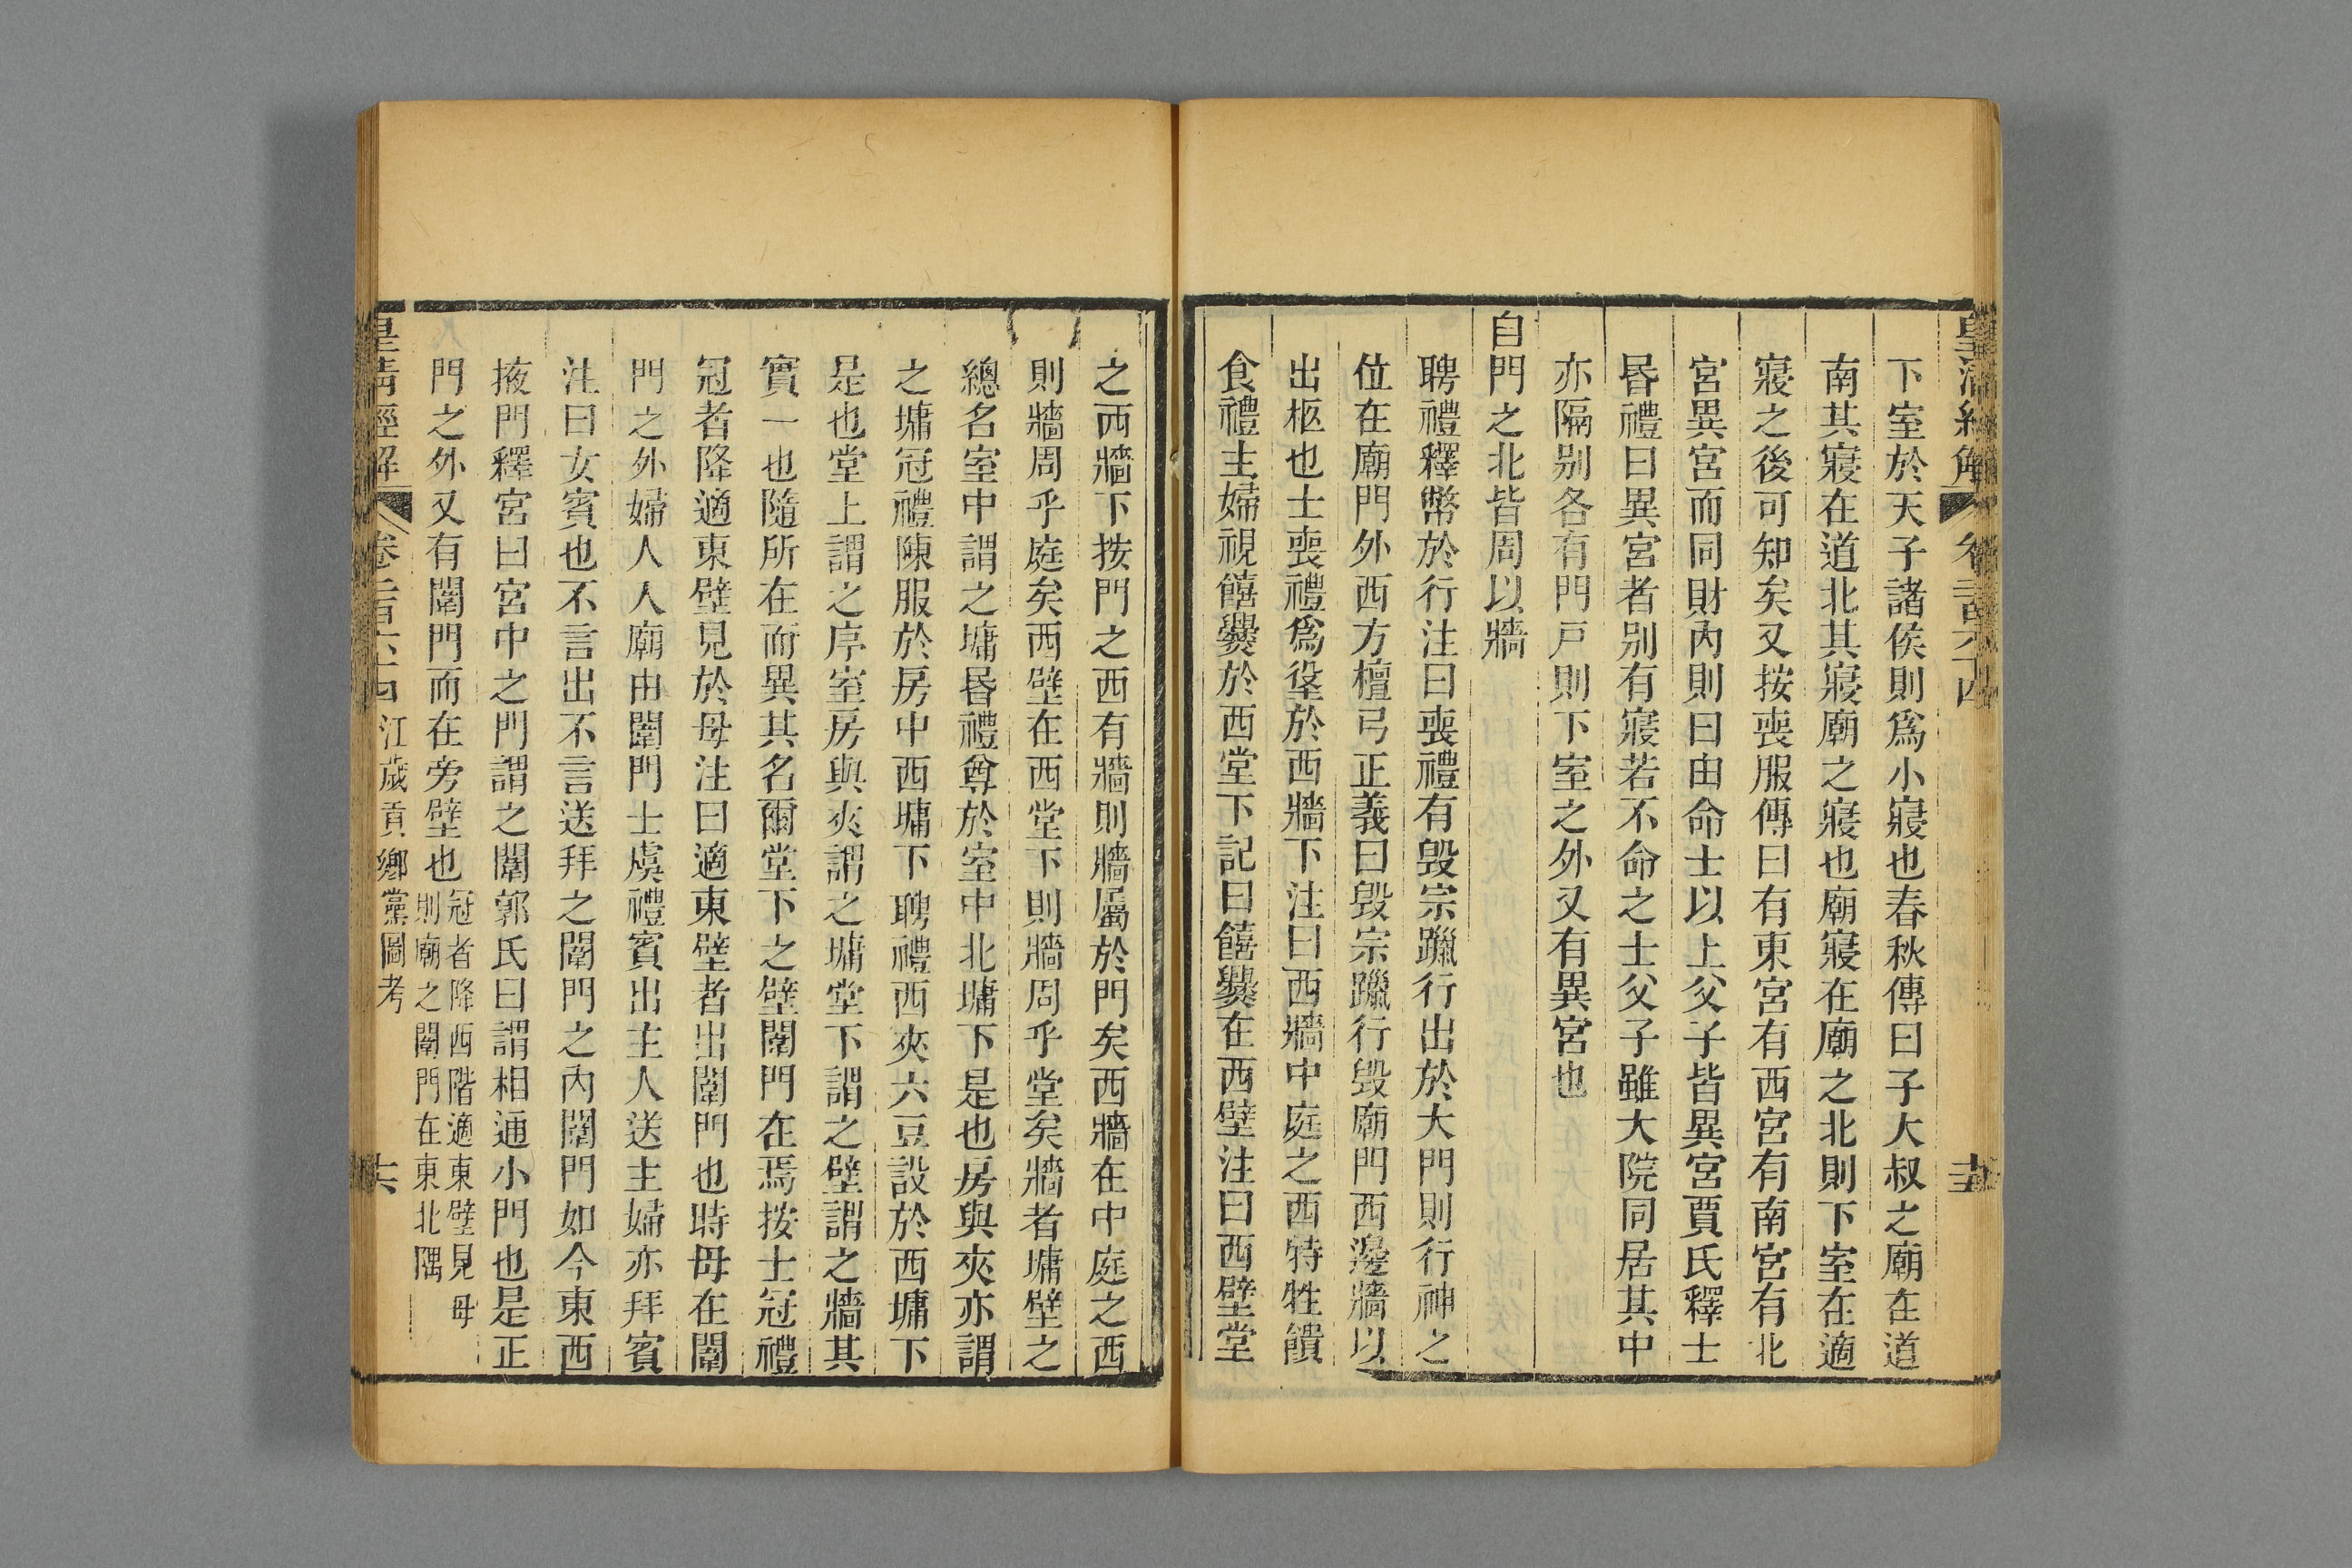 皇清經解
卷二百六十四
下室於天子諸侯則爲小寢也春秋傳曰子大叔之廟在道
南其寢在道北其寢廟之寢也廟寢在廟之北則下室在適
寢之後可知矣又按喪服傳曰有東宮有西宮有南宮有北
宮異宮而同財內則曰由命士以上父子皆異宮賈氏釋士
昏禮曰異宮者别有寢若不命之士父子雖大院同居其中
亦隔别各有門戸則下室之外又有異宮也
自門之北皆周以牆
聘禮釋幣於行注曰喪禮有毀宗躐行出於大門則行神之
位在廟門外西方檀弓正義曰毀宗躐行毀廟門西邊牆以
出柩也士喪禮爲垼於西牆下注曰西牆中庭之西特牲饋
食禮主婦視饎爨於西堂下記曰饎爨在西壁注曰西壁堂
之西牆下按門之西有牆則牆屬於門矣西牆在中庭之西
則牆周乎庭矣西壁在西堂下則牆周乎堂矣牆者墉壁之
總名室中謂之墉昏禮尊於室中北墉下是也房與夾亦謂
之墉冠禮陳服於房中西墉下聘禮西夾六豆設於西墉下
是也堂上謂之序室房與夾謂之墉堂下謂之壁謂之牆其
實一也隨所在而異其名爾堂下之壁闈門在焉按士冠禮
冠者降適東壁見於母注曰適東壁者出闈門也時毋在闈
門之外婦人入廟由闈門士虞禮賓出主人送主婦亦拜賓
注曰女賓也不言出不言送拜之闈門之內闈門如今東西
掖門釋宮曰宮中之門謂之闈郭氏曰謂相通小門也是正
門之外又有闈門而在旁壁也
冠者降西階適東壁見母
則廟之闈門在東北隅
皇清經解
卷二百六十四
江歲貢鄉黨圖考